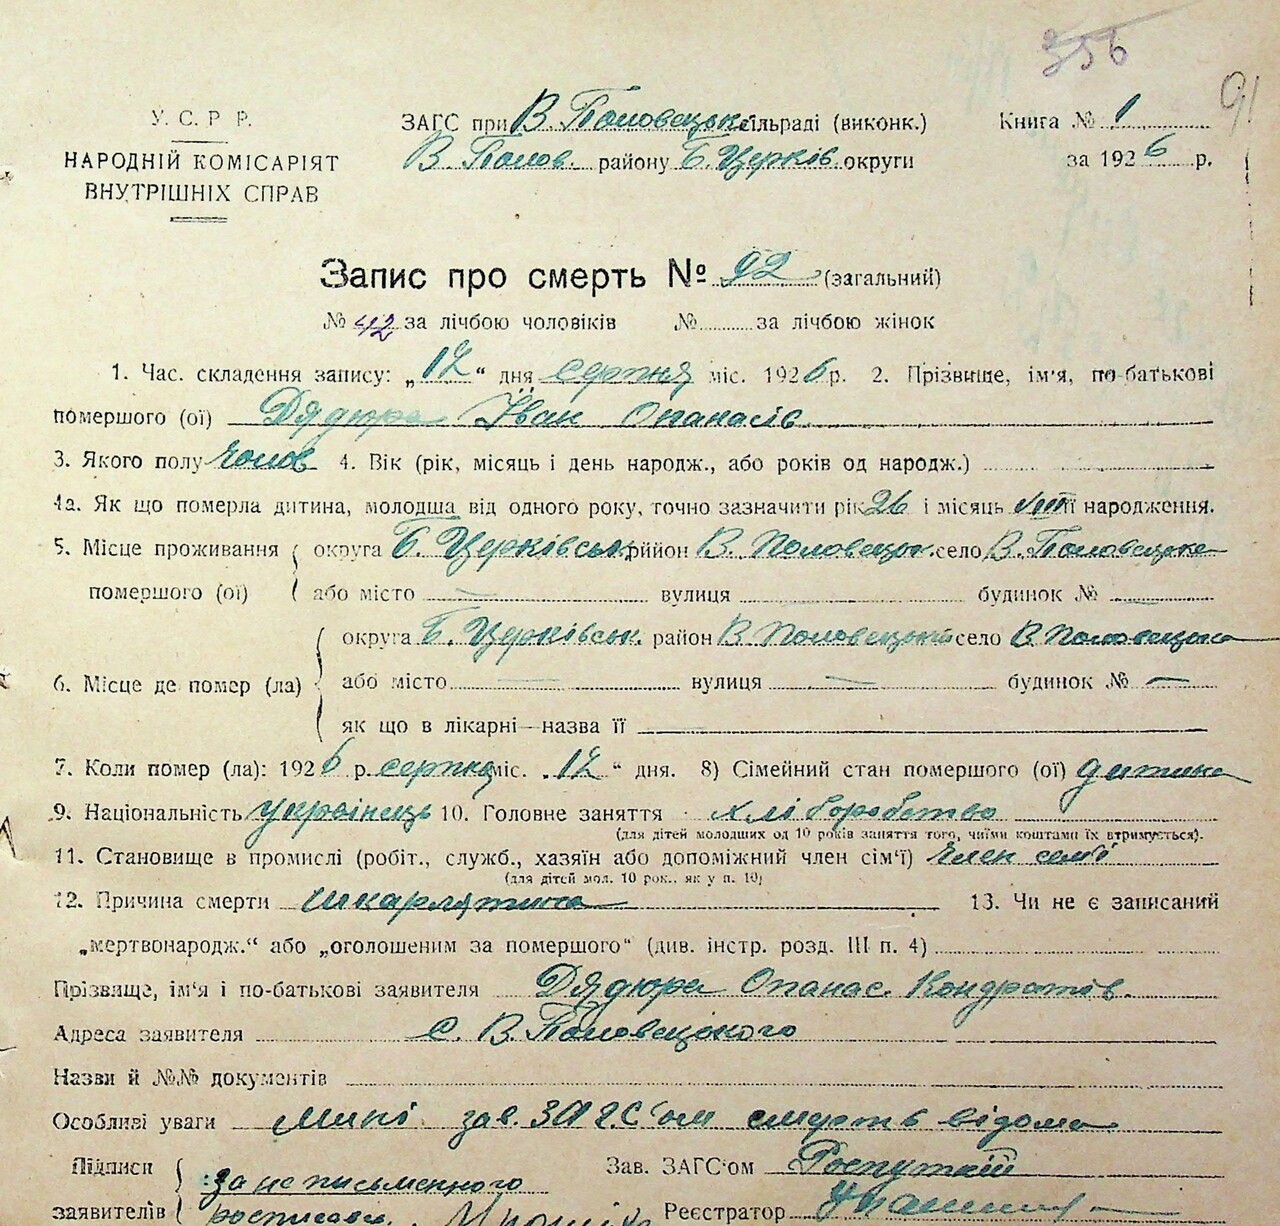 356
91
У. С. Р. Р.
НАРОДНІЙ КОМІСАРІЯТ
ВНУТРІШНІХ СПРАВ
ЗАГС при В. Половецькій сільраді (виконк.)
В. Полов. району Б. Церків. округи
Книга № 1
за 1926 р.
Запис про смерть № 92 (загальний)
№ 42 за лічбою чоловіків № за лічбою жінок
1. Час. складення запису: „12“ дня серпня міс. 1926 р. 2. Прізвище, ім'я, по-батькові
помершого (ої) Дядюра Іван Опанасів
3. Якого полу чолов 4. Вік (рік, місяць і день народж., або років од народж.)
4а. Як що померла дитина, молодша від одного року, точно зазначити рік 26 і місяць VIII її народження.
5. Місце проживання помершого (ої) округа Б. Церківськ. район В. Половецьк. село В. Половецьке
або місто — вулиця будинок №
6. Місце де помер (ла) округа Б. Церківськ. район В. Половецький село В. Половецьке
або місто — вулиця — будинок № —
як що в лікарні—назва її
7. Коли помер (ла): 1926 р. серпня міс. „12“ дня. 8) Сімейний стан помершого (ої) дитина
9. Національність українець 10. Головне заняття хліборобство
(для дітей молодших од 10 років заняття того, чиїми коштами їх втримується).
11. Становище в промислі (робіт., служб., хазяїн або допоміжний член сім'ї) член семʼї
(для дітей мол. 10 рок., як у п. 10)
12. Причина смерти шкарлятина 13. Чи не є записаний
„мертвонародж.“ або „оголошеним за помершого“ (див. інстр. розд. III п. 4)
Прізвище, ім'я і по-батькові заявителя Дядюра Опанас Кондратів.
Адреса заявителя с. В. Половецького
Назви й №№ документів
Особливі уваги Мині зав. ЗАГС'ом смерть відома
Підписи заявителів за не письменного
росписався
Зав. ЗАГС'ом Роспутній
Реєстратор